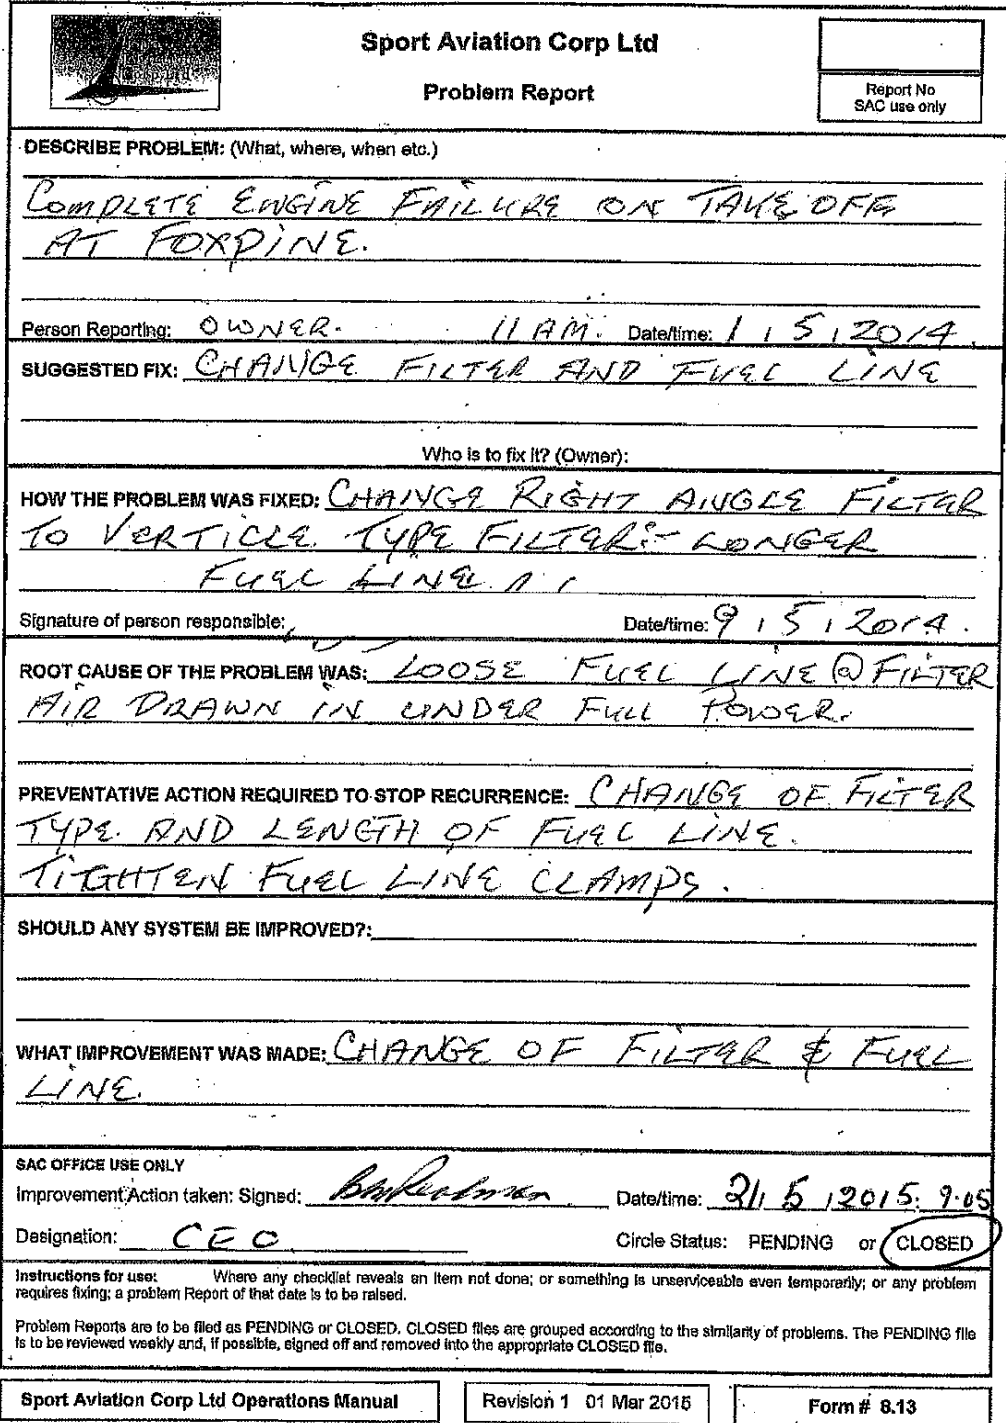 Sport Aviation Corp Ltd
Problem Report
Report No
SAC use only
DESCRIBE PROBLEM: (What, where, when etc.)
COMPLETE ENGINE FAILURE ON TAKE OFF
AT FOXPINE.
Person Reporting: OWNER. 11 AM. Date/time: 1, 5, 2014.
SUGGESTED FIX: CHANGE FILTER AND FUEL LINE
Who is to fix it? (Owner):
HOW THE PROBLEM WAS FIXED: CHANGE RIGHT ANGLE FILTER
TO VERTICLE TYPE FILTER:- LONGER
FUEL LINE
Signature of person responsible: Date/time: 9, 5, 2014.
ROOT CAUSE OF THE PROBLEM WAS: LOOSE FUEL LINE @ FILTER
AIR DRAWN IN UNDER FULL POWER.
PREVENTATIVE ACTION REQUIRED TO STOP RECURRENCE: CHANGE OF FILTER
TYPE AND LENGTH OF FUEL LINE.
TIGHTEN FUEL LINE CLAMPS.
SHOULD ANY SYSTEM BE IMPROVED?:
WHAT IMPROVEMENT WAS MADE: CHANGE OF FILTER & FUEL
LINE.
SAC OFFICE USE ONLY
Improvement Action taken: Signed: Date/time: 21, 5, 2015. 9.05
Designation: CEO Circle Status: PENDING or CLOSED
Instructions for use: Where any checklist reveals an item not done; or something is unserviceable even temporarily; or any problem
requires fixing; a problem Report of that date is to be raised.
Problem Reports are to be filed as PENDING or CLOSED. CLOSED files are grouped according to the similarity of problems. The PENDING file
is to be reviewed weekly and, if possible, signed off and removed into the appropriate CLOSED file.
Sport Aviation Corp Ltd Operations Manual Revision 1 01 Mar 2015 Form # 8.13